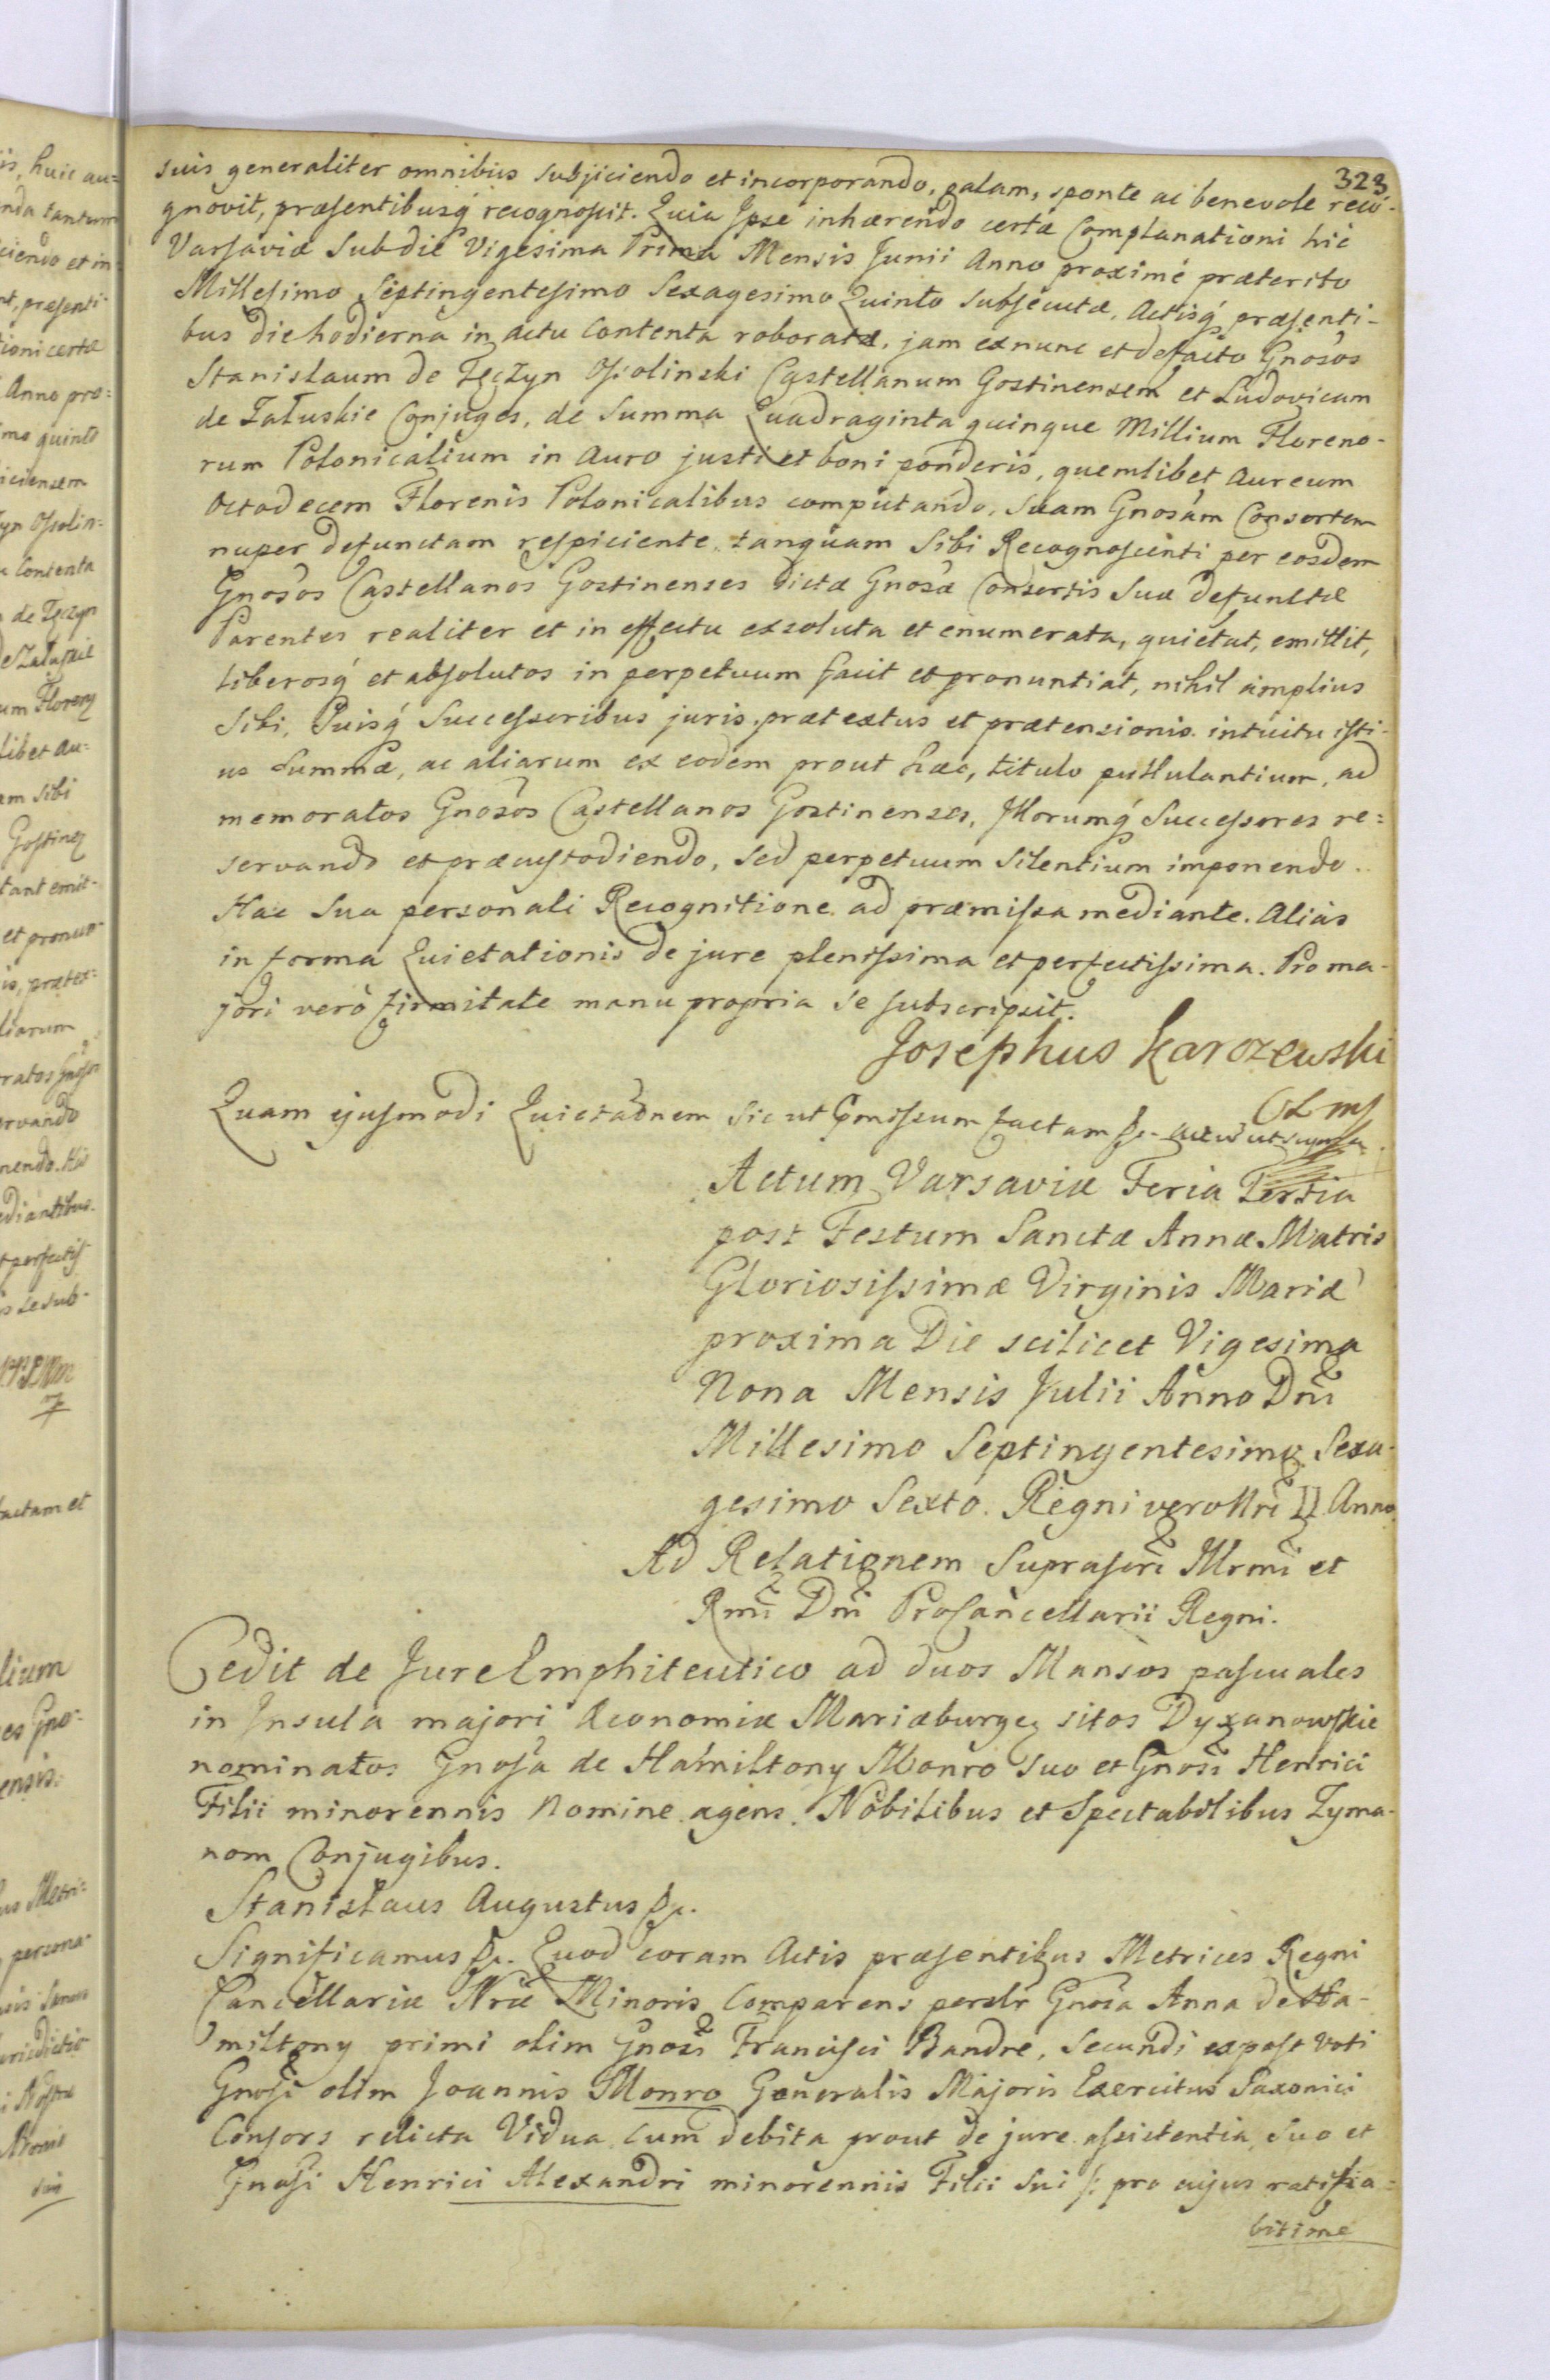 323
suis generaliter omnibus subjiciendo et incorporando, palam, sponte ac benevole reco-
gnovit, præsentibusq́ recognoscit. Quia Ipse inhærendo certæ Complanationi hic
Varsaviæ sub die Vigesima Prima Mensis Junii Anno proximé præterito
Millesimo Septingentesimo Sexagesimo Quinto subsecutæ, Actisq́ præsenti-
bus die hodierna in actu Contenta roboratæ, jam ex nunc et de facto Gnosos
Stanislaum de Tęczyn Ossolinski Castellanum Gostinensem et Ludovicam
de Załuskie Conjuges, de Summa Quadraginta quinque Millium Floreno-
rum Polonicalium in Auro justi et boni ponderis, quemlibet Aureum
Octodecem Florenis Polonicalibus computando, Suam Gnosam Consortem
nuper defunctam respiciente, tanquam Sibi Recognoscenti per eosdem
Gnosos Castellanos Gostinenses dictæ Gnosæ Consortis Suæ defunctæ
Parentes realiter et in effectu exsoluta et enumerata, quietat, emittit,
Liberosq́ et absolutos in perpetuum facit et pronuntiat, nihil amplius
Sibi, Suisq́ Successoribus juris, prætextus et prætensionis intuitu isti-
us Summæ, ac aliarum ex eodem prout hæc, titulo pullulantium, ad
memoratos Gnosos Castellanos Gostinenses, Illorumq́ Successores re=
servando et præcustodiendo, sed perpetuum silentium imponendo.
Hac Sua personali Recognitione ad præmissa mediante. Aliàs
in forma Quietationis de jure plenissima et perfectissima. Pro ma-
jori verò firmitate manu propria se subscripsit.
Josephus Karczewski
Quam ejusmodi Quietaonem sic ut pmissum factam
Actum Varsaviæ Feria Tertia
post Festum Sanctæ Annæ Matris
Gloriosissimæ Virginis Mariæ
proxima Die scilicet Vigesima
Nona Mensis Julii Anno Dni
Millesimo Septingentesimo Sexa-
gesimo Sexto. Regni vero Nri II Anno
Ad Relationem suprascri Illrmi et
Rmi Dni ProCancellarii Regni.
Cedit de Jure Emphiteutico ad duos Mansos pascuales
in Insula majori Æconomiæ Mariæburgen sitos Dyxanowskie
nominatos Gnosa de Hamiltony Monro suo et Gnosi Henrici
Filii minorennis Nomine agens. Nobilibus et Spectabilibus Zyma-
nom Conjugibus.
Stanislaus Augustus &c.
Significamus &c. Quod coram Actis præsentibus Metrices Regni
Cancellariæ Nræ Minoris Comparens perslr Gnosa Anna de Ha-
miltony primi olim Gnosi Francisci Bandre, secundi expost voti
Gnosi olim Joannis Monro Generalis Majoris Exercitus Saxonici
Consors relicta Vidua, cum debita prout de jure assistentia, suo et
Gnosi Henrici Alexandri minorennis Filii Sui /: pro cujus ratifia=
bitime